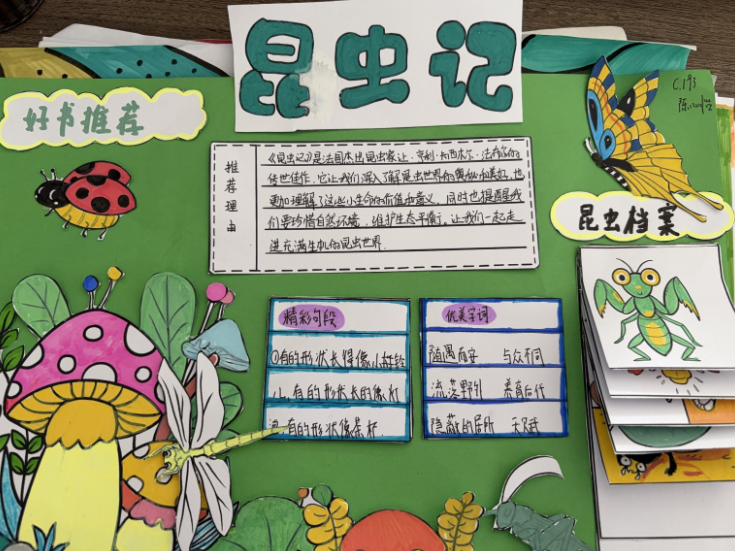 昆虫记
好书推荐
C.193
推荐理由
《昆虫记》是法国杰出昆虫家让·亨利·卡西米尔·法布尔的
传世佳作，它让我们深入了解昆虫世界的奥秘和美好，也
更加理解了这些小生命的价值和意义，同时也提醒我
们要珍惜自然环境，维护生态平衡，让我们一起走
进充满生机的昆虫世界
昆虫档案
精彩句段
①有的形状长得像小
有的形状长的像
有的形状像茶杯
优美字词
随遇而安 与众不同
流落野外 养育后代
隐蔽的居所